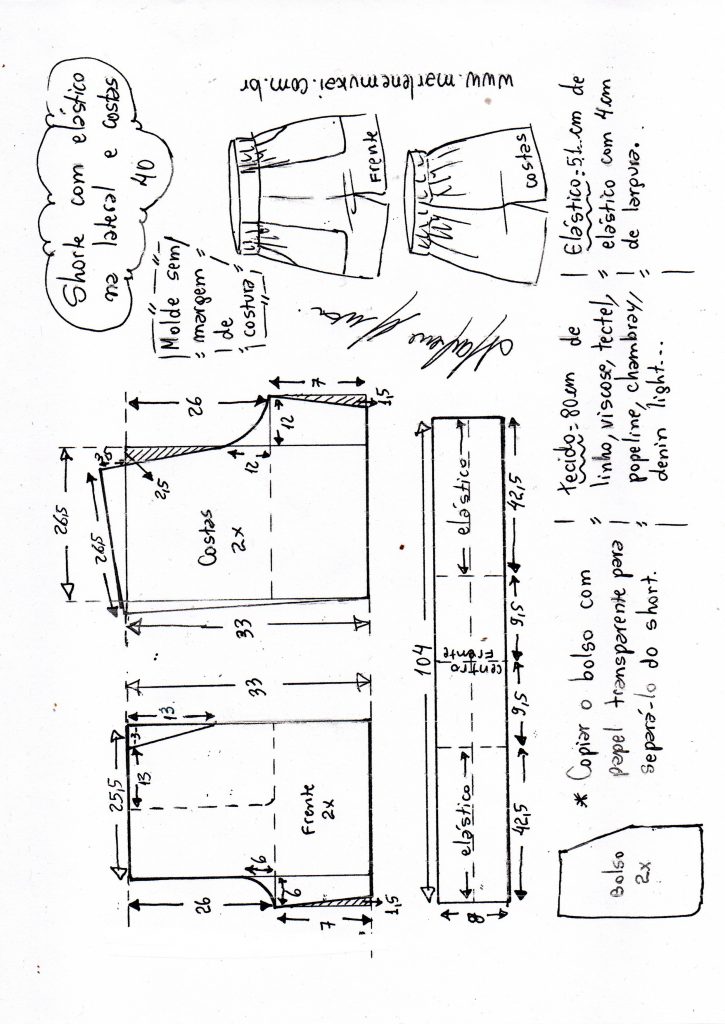 Shorte com elástico
na lateral e costas
40
Molde sem
margem
de
costura
www.marlenemukai.com.br
Frente
costas
26,5
26,5
3
2,5
26
12
12
7
1,5
33
Costas
2x
25,5
13
3
13
33
26
6
6
7
1,5
Frente
2x
104
elástico
centro
Frente
elástico
8
42,5
9,5
9,5
42,5
Bolso
2x
* Copiar o bolso com
papel transparente para
separá-lo do short.
tecido=80cm de
linho, viscose, tectel,
popeline, chambray,
denin light...
Elástico=51cm de
elástico com 4cm
de larpura.